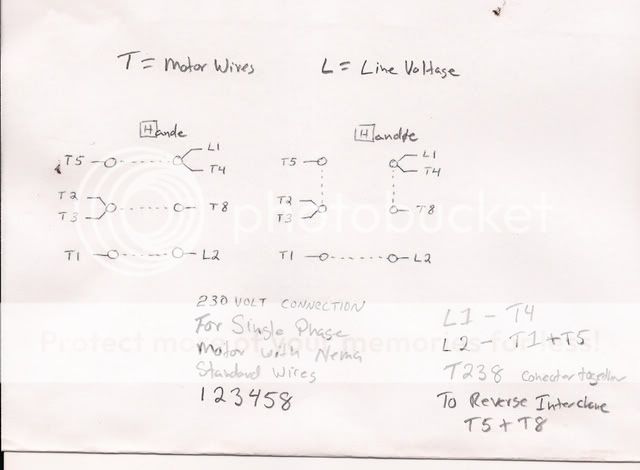 T = Motor Wires L = Line Voltage
Hande
T5 L1
T4
T2
T3 T8
T1 L2
Handle
T5 L1
T4
T2
T3 T8
T1 L2
230 VOLT CONNECTION
For Single Phase
Motor with Nema
Standard Wires
123458
L1 - T4
L2 - T1 + T5
T238 together
To Reverse
T5 + T8
photobucket
Protect more of your memories for less!